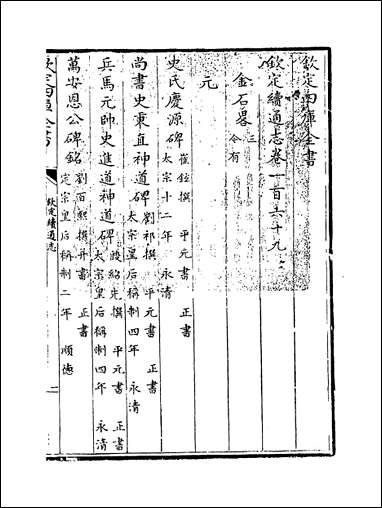 欽定四庫全書
欽定續通志卷一百六十九
金石畧 三 今有
元
史氏慶源碑 崔鉉撰 平元書 正書
太宗十二年 永清
尚書史秉直神道碑 劉祁撰 平元書 正書
太宗皇后稱制四年 永清
兵馬元帥史進道神道碑 段紹先撰 平元書 正書
太宗皇后稱制四年 永清
萬安恩公碑銘 劉百熙撰并書 正書
定宗皇后稱制二年 順德
欽定四庫全書
欽定續通志